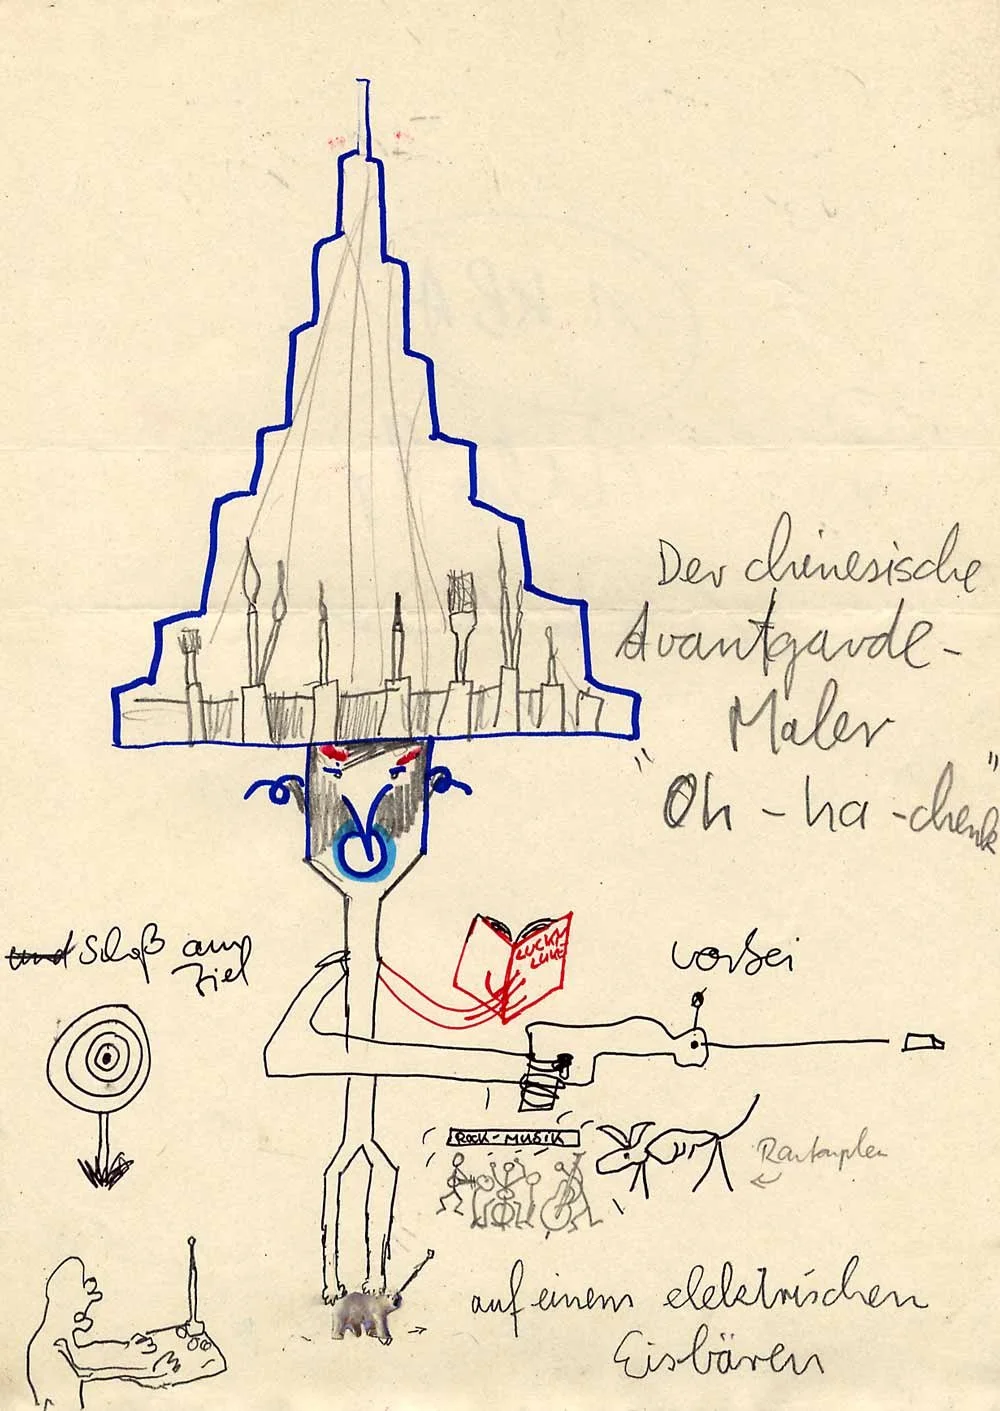 Der chinesische
Avantgarde-
Maler
"Oh-ha-chenk"
LUCKY
LUKE
und Schoß am
Ziel
vorbei
ROCK-MUSIK
Rantanplan
auf einem elektrischen
Eisbären